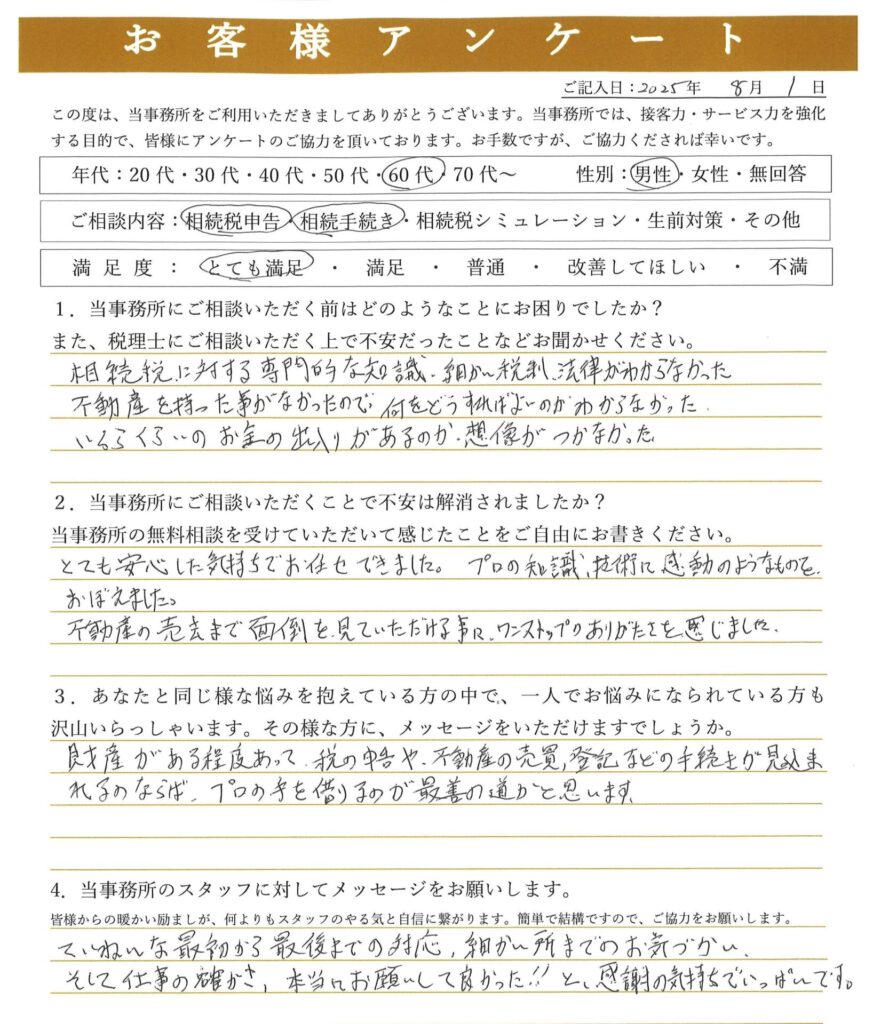 お客様アンケート
ご記入日：2025年 8月 1日
この度は、当事務所をご利用いただきましてありがとうございます。当事務所では、接客力・サービス力を強化
する目的で、皆様にアンケートのご協力を頂いております。お手数ですが、ご協力くだされば幸いです。
年代：20代・30代・40代・50代・60代・70代～ 性別：男性・女性・無回答
ご相談内容：相続税申告・相続手続き・相続税シミュレーション・生前対策・その他
満足度： とても満足 ・ 満足 ・ 普通 ・ 改善してほしい ・ 不満
１．当事務所にご相談いただく前はどのようなことにお困りでしたか？
また、税理士にご相談いただく上で不安だったことなどお聞かせください。
相続税に対する専門的な知識、細かい税制、法律がわからなかった
不動産を持った事がなかったので、何をどうすればよいのかわからなかった。
いくらくらいのお金の出入りがあるのか、想像がつかなかった
２．当事務所にご相談いただくことで不安は解消されましたか？
当事務所の無料相談を受けていただいて感じたことをご自由にお書きください。
とても安心した気持ちでお任せできました。プロの知識、技術に感動のようなものを、
おぼえました。
不動産の売去まで面倒を見ていただける事に、ワンストップのありがたさを感じました。
３．あなたと同じ様な悩みを抱えている方の中で、一人でお悩みになられている方も
沢山いらっしゃいます。その様な方に、メッセージをいただけますでしょうか。
財産がある程度あって、税の申告や、不動産の売買、登記などの手続きが見込ま
れるのならば、プロの手を借りるのが最善の道かと思います。
4．当事務所のスタッフに対してメッセージをお願いします。
皆様からの暖かい励ましが、何よりもスタッフのやる気と自信に繋がります。簡単で結構ですので、ご協力をお願いします。
ていねいな最初から最後までの対応、細かい所までのお気づかい、
そして仕事の確かさ、本当にお願いして良かった!! と、感謝の気持ちでいっぱいです。